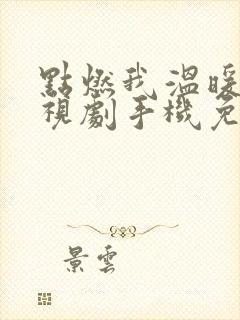 點燃我溫暖
視劇手機免
景雲